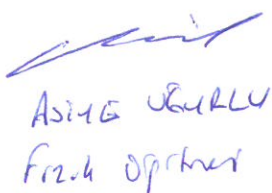 Asiye UĞURLU
Fizik Öğrtmni